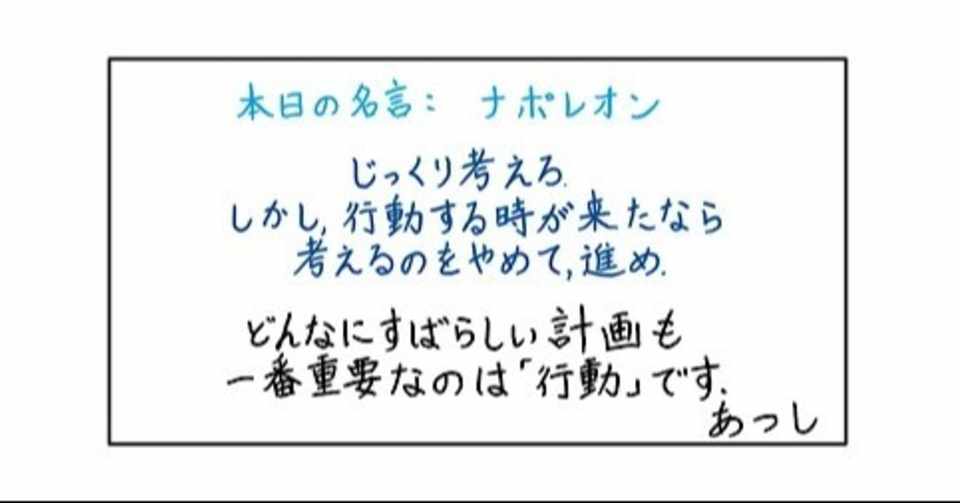 本日の名言： ナポレオン
じっくり考えろ.
しかし, 行動する時が来たなら
考えるのをやめて, 進め.
どんなにすばらしい計画も
一番重要なのは「行動」です.
あつし